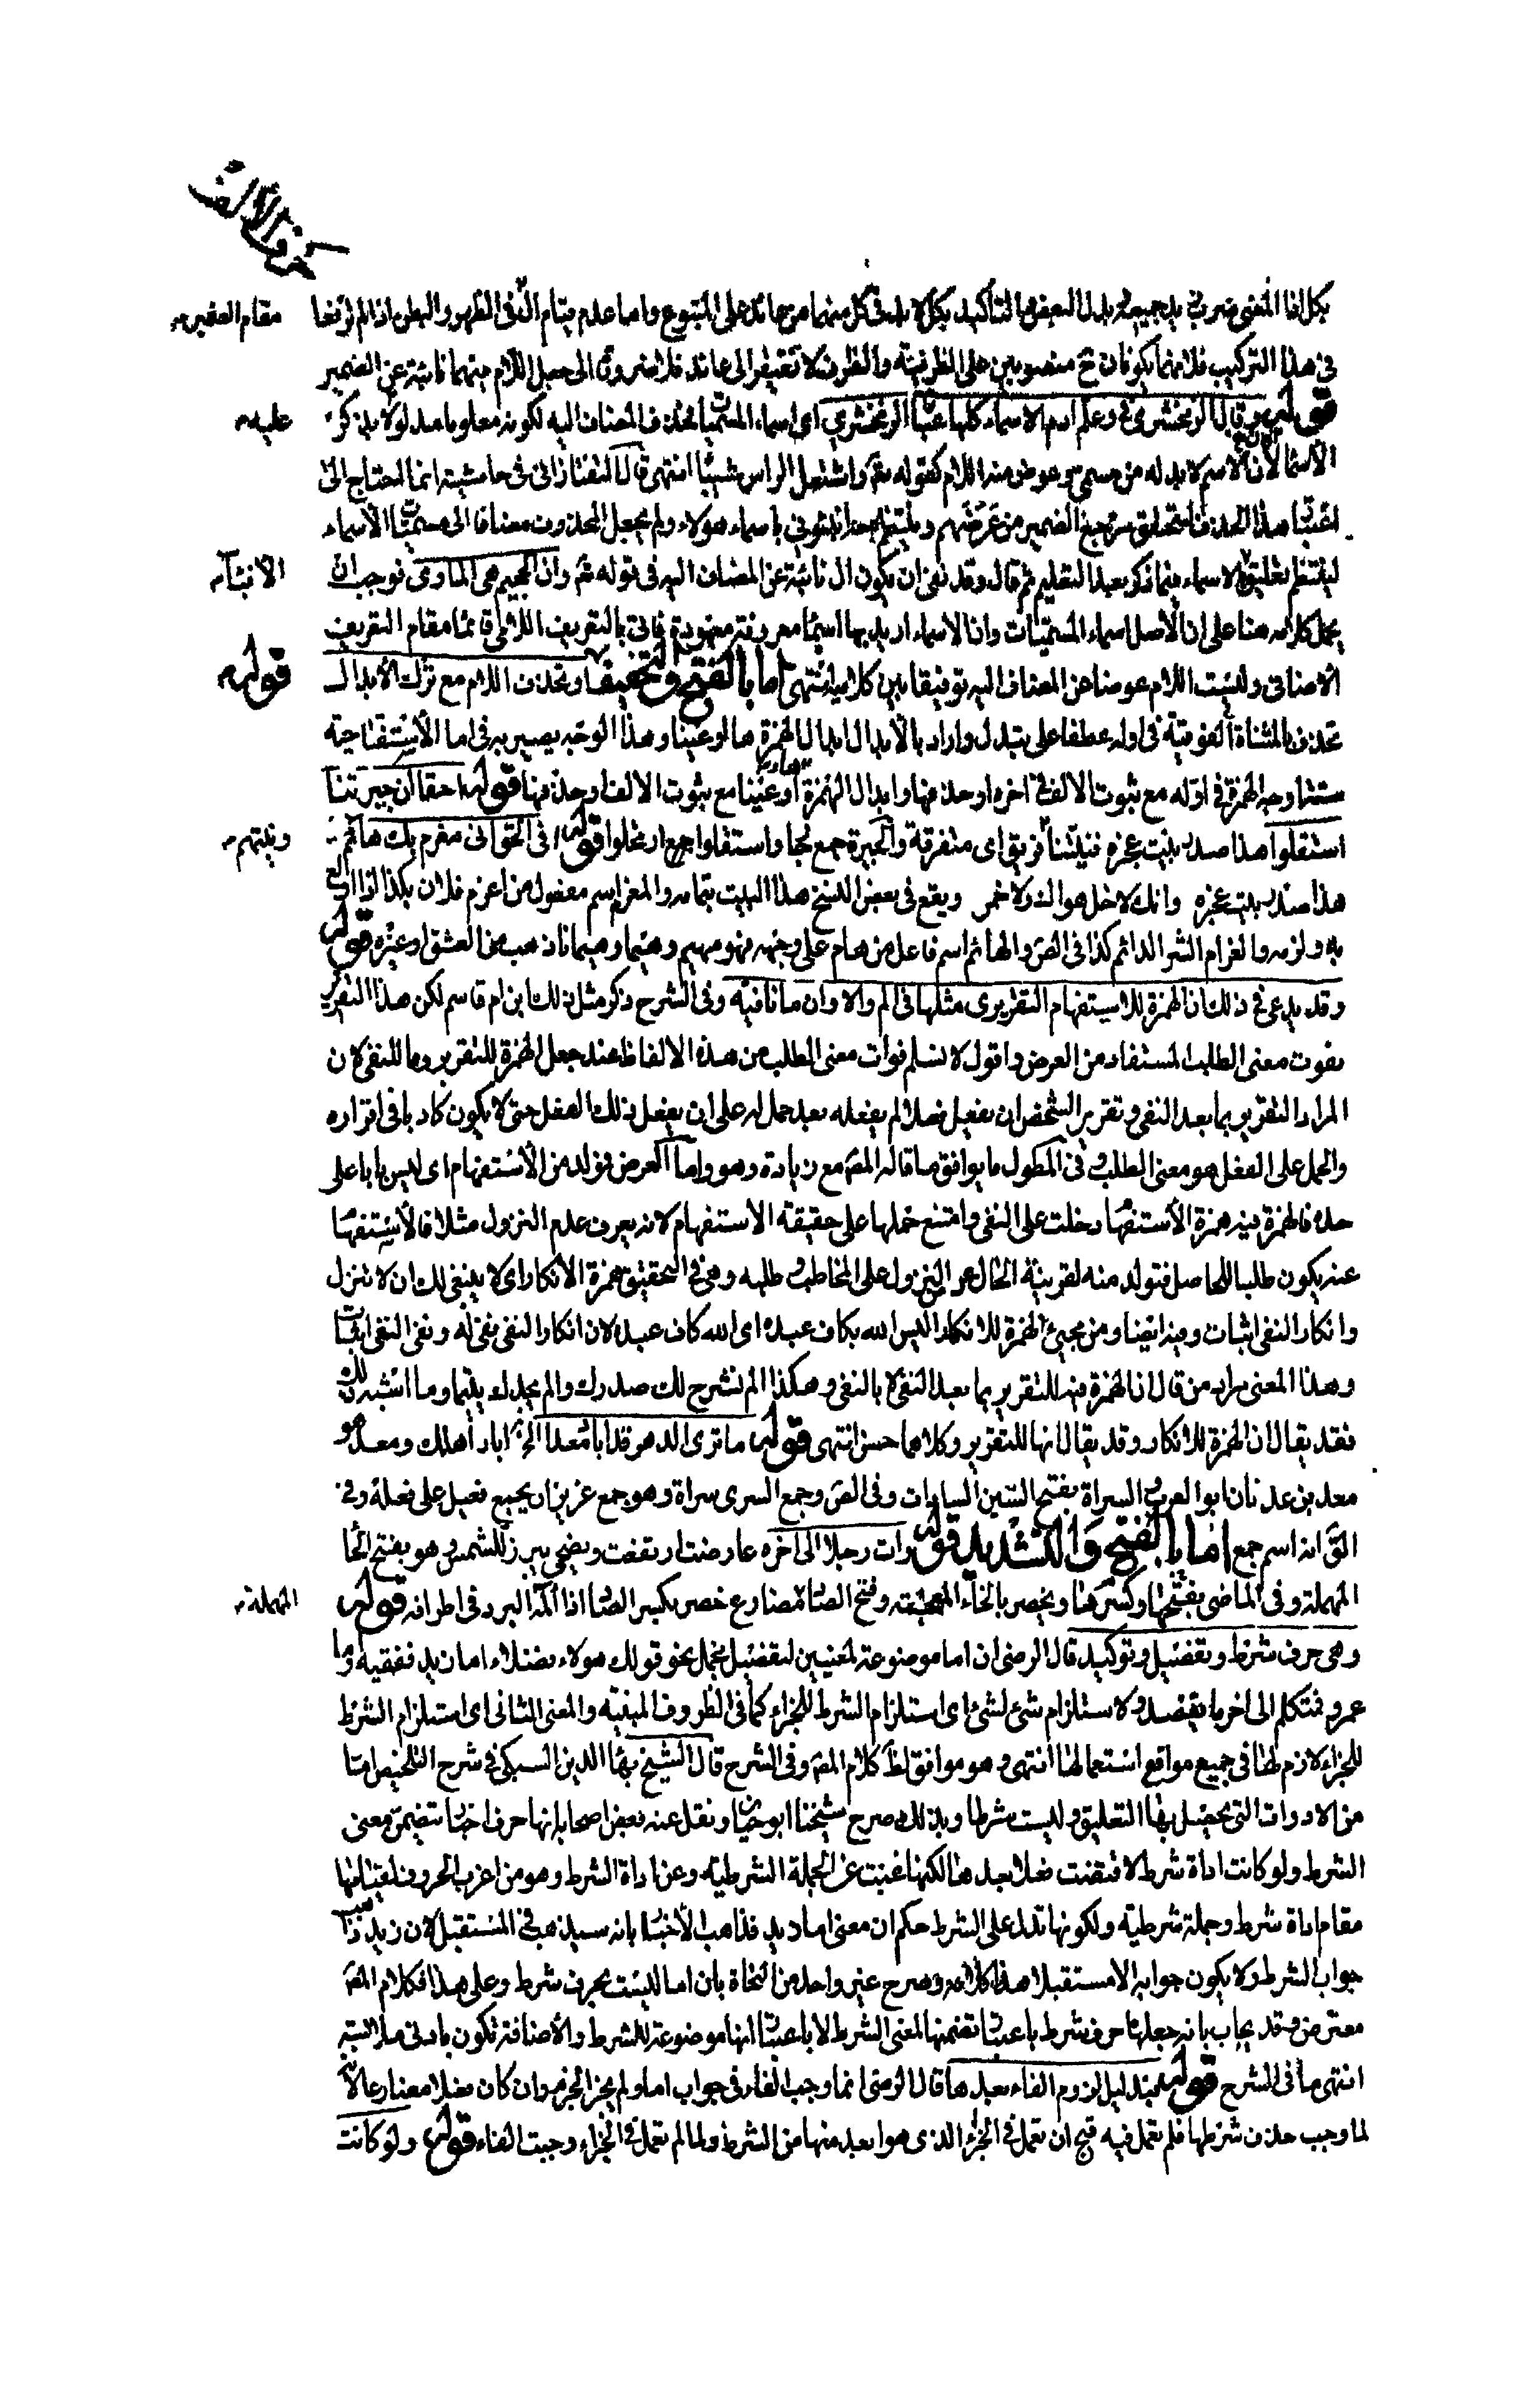 حرف الألف
بكل اذا المعنى ضرب زيد جميعه بدل البعض والتأكيد بكل لا بد في كل منهما من عائد على المتبوع واما عدم قيام ال في الظهر والبطن اذا لم ترفعا مقام الضمير
في هذا التركيب فلانهما يكونان ح منصوبين على الظرفية والظرف لا تفتقر الى عائد فلا ضرورة الى جعل اللام فيهما نائبة عن الضمير
قوله وقال الزمخشري في وعلم ادم الاسماء كلها عبا الزمخشري اى اسماء المسميات فحذف المضاف اليه لكونه معلوما مدلولا عليه بذكر
الاسماء لان الاسم لا بد له من مسمى وعوض منه اللام كقوله تعم واشتعل الراس شيبا انتهى قال التفتازاني في حاشيته انما احتاج الى
اعتبا هذا الحذف ليتحقق مرجع الضمير من عرضهم وينتظم انبئوني باسماء هولاء ولم يجعل المحذوف مضافا الى مسميات الاسماء
لينتظم تعليق الانباء بالاسماء فيما ذكر بعد التعليم ثم قال وقد نفى ان يكون ال نائبة عن المضاف اليه في قوله تعم وان الجحيم هي الماوى فوجب ان
يحمل كلامه هنا على ان الأصل اسماء المسميات وان الاسماء اريد بها اسيما معروفة معهودة فاتى بالتعريف اللامى قائما مقام التعريف
الاضافى وليست اللام عوضا عن المضاف اليه توفيقا بين كلاميه انتهى اما بالفتح والتخفيف قوله وتحذف اللام مع ترك الابدال
تحذف بالمثناة الفوقية في اوله عطفا على تبدل واراد بالابدال ابدال الهمزة هاا وعينا وهذا الوجه يصير به في اما الاستفتاحية
ستة اوجه الهمزة في اوله مع ثبوت الالف في اخره او حذفها وابدال الهمزة هاء او عينا مع ثبوت الالف او حذفها قوله احقا ان جيرتنا
استقلوا هذا صدر بيت عجزه فنيتنا ونيتهم فريق اى متفرقة والجيرة جمع لجا واستقلوا ج ارتحلوا قوله افى الحق انى مغرم بك هائم
هذا صدر بيت عجزه وانك لا خل هواك ولا خمر ويقع في بعض النسخ هذا البيت بتمامه والمغرم اسم مفعول من اغرم فلان بكذا اذا اولع
به ولزمه والغرام الشر الدائم كذا في الص والهائم اسم فاعل من هام على وجهه فهو يهيم وهيما وهيمانا ذهب من العشق او غيره قوله
وقد يدعى في ذلك ان الهمزة للاستفهام التقريرى مثلها في الم والا وان ما نافيه وفى الشرح ذكر مثل ذلك ابن ام قاسم لكن هذا التقرير
يفوت معنى الطلب المستفاد من العرض واقول لا نسلم فوات معنى الطلب من هذه الالفاظ عند جعل الهمزة للتقرير وما للنفى لان
المراد التقرير بما بعد النفى وتقرير الشخص ان يفعل فعلا لم يفعله بعد حمل له على ان يفعل ذلك الفعل حتى لا يكون كاذبا في اقراره
والحمل على الفعل هو معنى الطلب وفى المطول ما يوافق ما قاله المص مع زيادة وهو واما العرض فمولد من الاستفهام اى ليس بابا على
حده فالهمزة فيه همزة الاستفها دخلت على النفى وامتنع حملها على حقيقة الاستفهام لانه يعرف عدم النزول مثلا فالاستفها
عنه يكون طلبا للحاصل فتولد منه لقرينة الحال عرض النزول على المخاطب وطلبه وهى في التحقيق همزة الانكار اى لا ينبغى لك ان لا تنزل
وانكار النفى اثبات وفيه ايضا ومن مجئ الهمزة للانكار اليس الله بكاف عبده اى الله كاف عبده لان انكار النفى نفى له ونفى النفى اثبات
وهذا المعنى مراد من قال ان الهمزة فيه للتقرير بما بعد النفى لا بالنفى وهكذا الم نشرح لك صدرك والم يجدك يتيما وما اشبه ذلك
فقد يقال ان الهمزة للانكار وقد يقال انها للتقرير وكلاهما حسن انتهى قوله ما ترى الدهر قد اباد معدا الخ اباد أهلك ومعد هو
معد بن عدنان ابو العرب والسراة بفتح السين السادات وفى الص وجمع السرى سراة وهو جمع عزيز ان يجمع فعيل على فعلة وفى
القا انه اسم جمع اما بالفتح والتشديد قوله رات رجلا الى اخره عارضت ارتفعت ويضحى يبرز للشمس وهو بفتح الحا
المهملة وفى الماضى بفتحها وكسرها ويخصر بالخاء المعجمة وفتح الصاد المهملة مضارع خصر بكسر الصا اذا المه البرد في اطرافه قوله
وهى حرف شرط وتفصيل وتوكيد قال الرضى ان اما موضوعة لمعنيين لتفصيل مجمل نحو قولك هولاء فضلاء اما زيد ففقيه واما
عمرو فمتكلم الى اخر ما يقصد ولاستلزام شئ لشئ اى استلزام الشرط للجزاء كما في الظروف المبنية والمعنى الثانى اى استلزام الشرط
للجزاء لازم لها في جميع مواقع استعمالها انتهى وهو موافق لظ كلام المص وفى الشرح قال الشيخ بها الدين السبكى في شرح التلخيص اما
من الادوات التى يحصل بها التعليق وليست شرطا وبذلك صرح شيخنا ابو حيان ونقل عنه بعض اصحابه انها حرف اخبا تتضمن معنى
الشرط ولو كانت اداة شرط لاقتضت فعلا بعدها لكنها غنيت عن الجملة الشرطية وعن اداة الشرط وهو من اغرب الحروف لقيامها
مقام اداة شرط وجملة شرطية ولكونها تدل على الشرط حكم ان معنى اما زيد فذاهب الأخبا بانه سيذهب في المستقبل لان زيد ذاهب
جواب الشرط ولا يكون جوابه الا مستقبلا هذا كلامه وصرح غير واحد من النحاة بان اما ليست بحرف شرط وعلى هذا فكلام المص
معترض وقد يجاب بانه جعلها حرف شرط باعتبا تضمنها لمعنى الشرط لا باعتبا انها موضوعة للشرط والأضافة تكون بادنى ملابسة
انتهى ما في الشرح قوله بدليل لزوم الفاء بعدها قال الرضى انما وجب الفاء في جواب اما ولم يجز الجزم وان كان فعلا مضارعا لانه
لما وجب حذف شرطها فلم تعمل فيه قبح ان تعمل في الجزاء الذى هو ابعد منها من الشرط ولما لم تعمل في الجزاء وجبت الفاء قوله ولو كانت